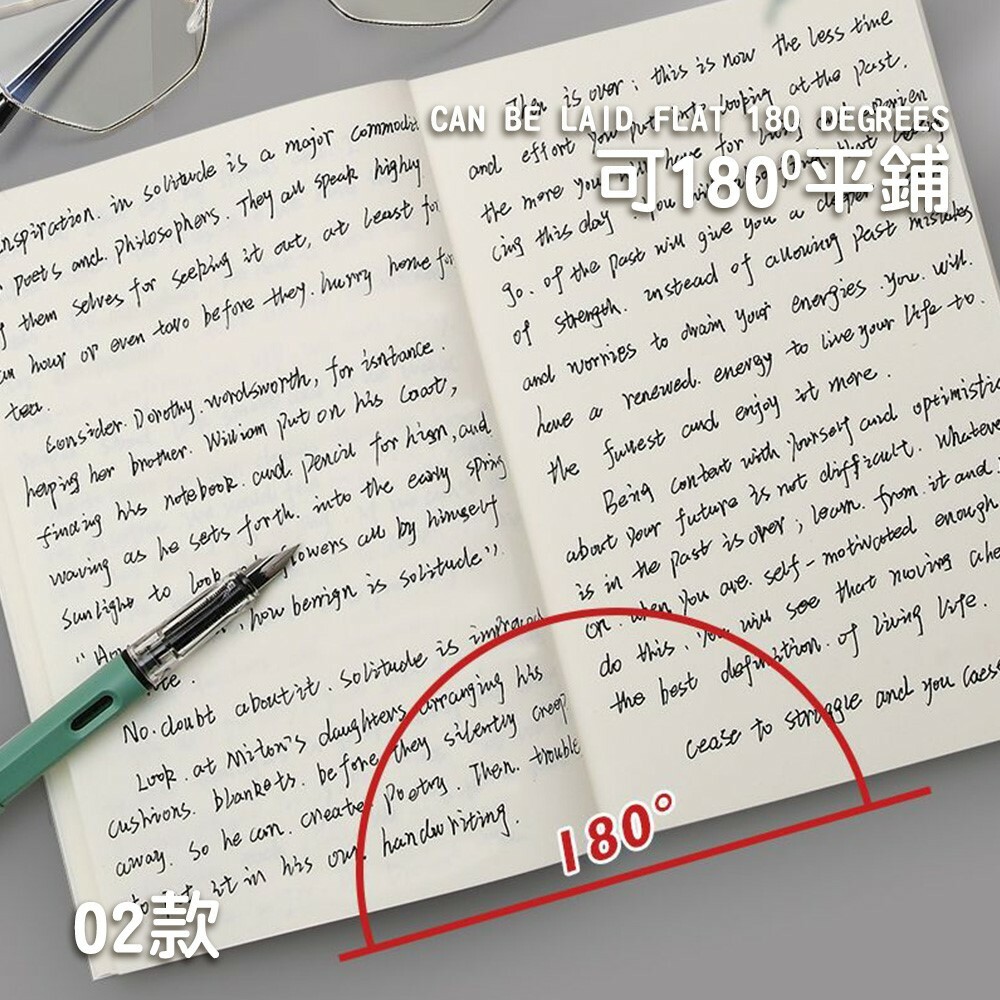 CAN BE LAID FLAT 180 DEGREES
可180°平鋪
inspiration. in solitude is a major commodit
poets and. philosophers. They all speak highly
g them selves for seeking it out, at least for
an hour or even two before they. hurry home for
tea.
Consider. Dorothy. wordsworth, for isntance.
helping her brother. William put on his Coat,
finding his notebook. and. pencil for hign, and.
waving as he sets forth. into the early spring
sunlight to look flowers all by himself
", how benign is solitude".
No. doubt about it. solitude is improved
Look. at Milton's daughters arranging his
cushions. blankets. before they silently creep
away. So he can. create poetry. Then. trouble
to it in his own handwriting.
Then is over; this is now the less time
and effort you put into looping at the past.
the more you will have for
cing this day. you
go. of the past will give you a deeper
of strength. instead of allowing past mistakes
and worries to drain your energies. you. will.
have a renewed. energy to live your life to.
the fullest and enjoy it more.
Being content with yourself and optimistic
about your future is not difficult. Whatever
is in the past is over; learn. from. it and
on. when you are. self-motivated enough
do this. you will see that moving ahe
the best definition. of living life.
cease to struggle and you cease
180°
02款